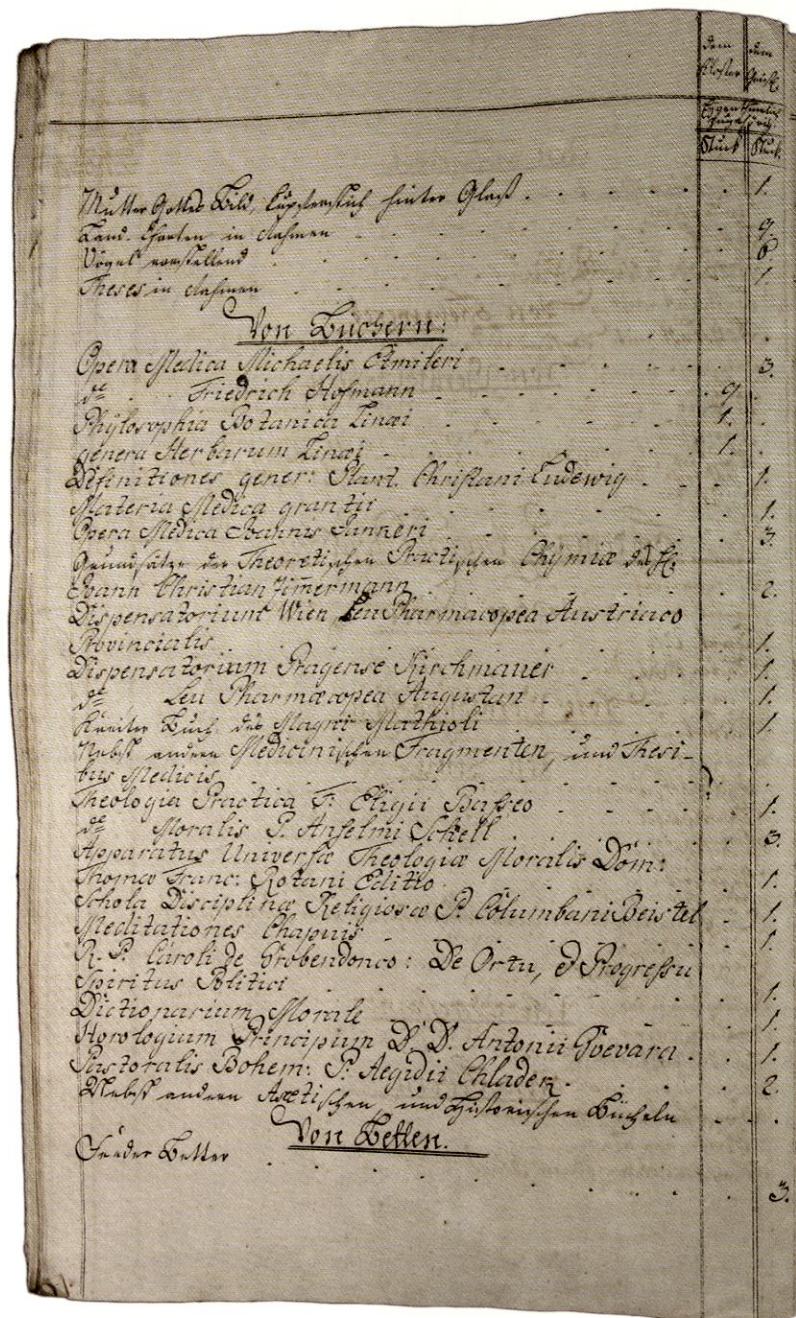 dem Kloster dem
Eigenthumlich
Stuck Stuck
Mutter Gottes Bild, Kupferstich hinter Glaß 1.
Land Charten in Rahmen 9.
Vögel vorstellend 6
Theses in Rahmen 1.
Von Buchern:
Opera Medica Michaelis Etmileri 3.
do Friedrich Hofmann 9
Phylosophia Botanica Linæi 1.
genera Herbarum Linæi 1.
Definitiones gener: Plant. Christani Ludewig 1.
Materia Medica grantii 1.
Opera Medica Joannis Janneri 3.
Grundsätze der Theoretischen Practischen Chymiæ des H:
Joann Christian Zimermann 2.
Dispensatorium Wien, seu Pharmacopea Austriaco
Provincialis 1.
Dispensatorium Pragense Kirchmauer 1.
do seu Pharmacopea Augustan 1.
Kräuter Buch des Mathioli 1.
Nebst andern Medicinischen Fragmenten, und Thesi-
bus Medicis
Theologia Practica P. Eligii Basseo 1.
do Moralis P. Anselmi Schell 3.
Apparatus Universæ Theologiæ Moralis Dom:
Thomæ Franc: Rotani Editio 1.
Schola Disciplinæ Religiosæ P. Columbani Beistel 1.
Meditationes Chapuis 1.
R. P. Caroli de Grobendonco: De Ortu, & Progressu
Spiritus Politici 1.
Dictionarium Morale 1.
Horologium Principium D. D. Antonii Gvevara 1.
Pastoralis Bohem: P. Aegidii Chladek 2.
Nebst andern Ascetischen, und Historischen Bücheln
Von Betten.
Feeder Better 3.